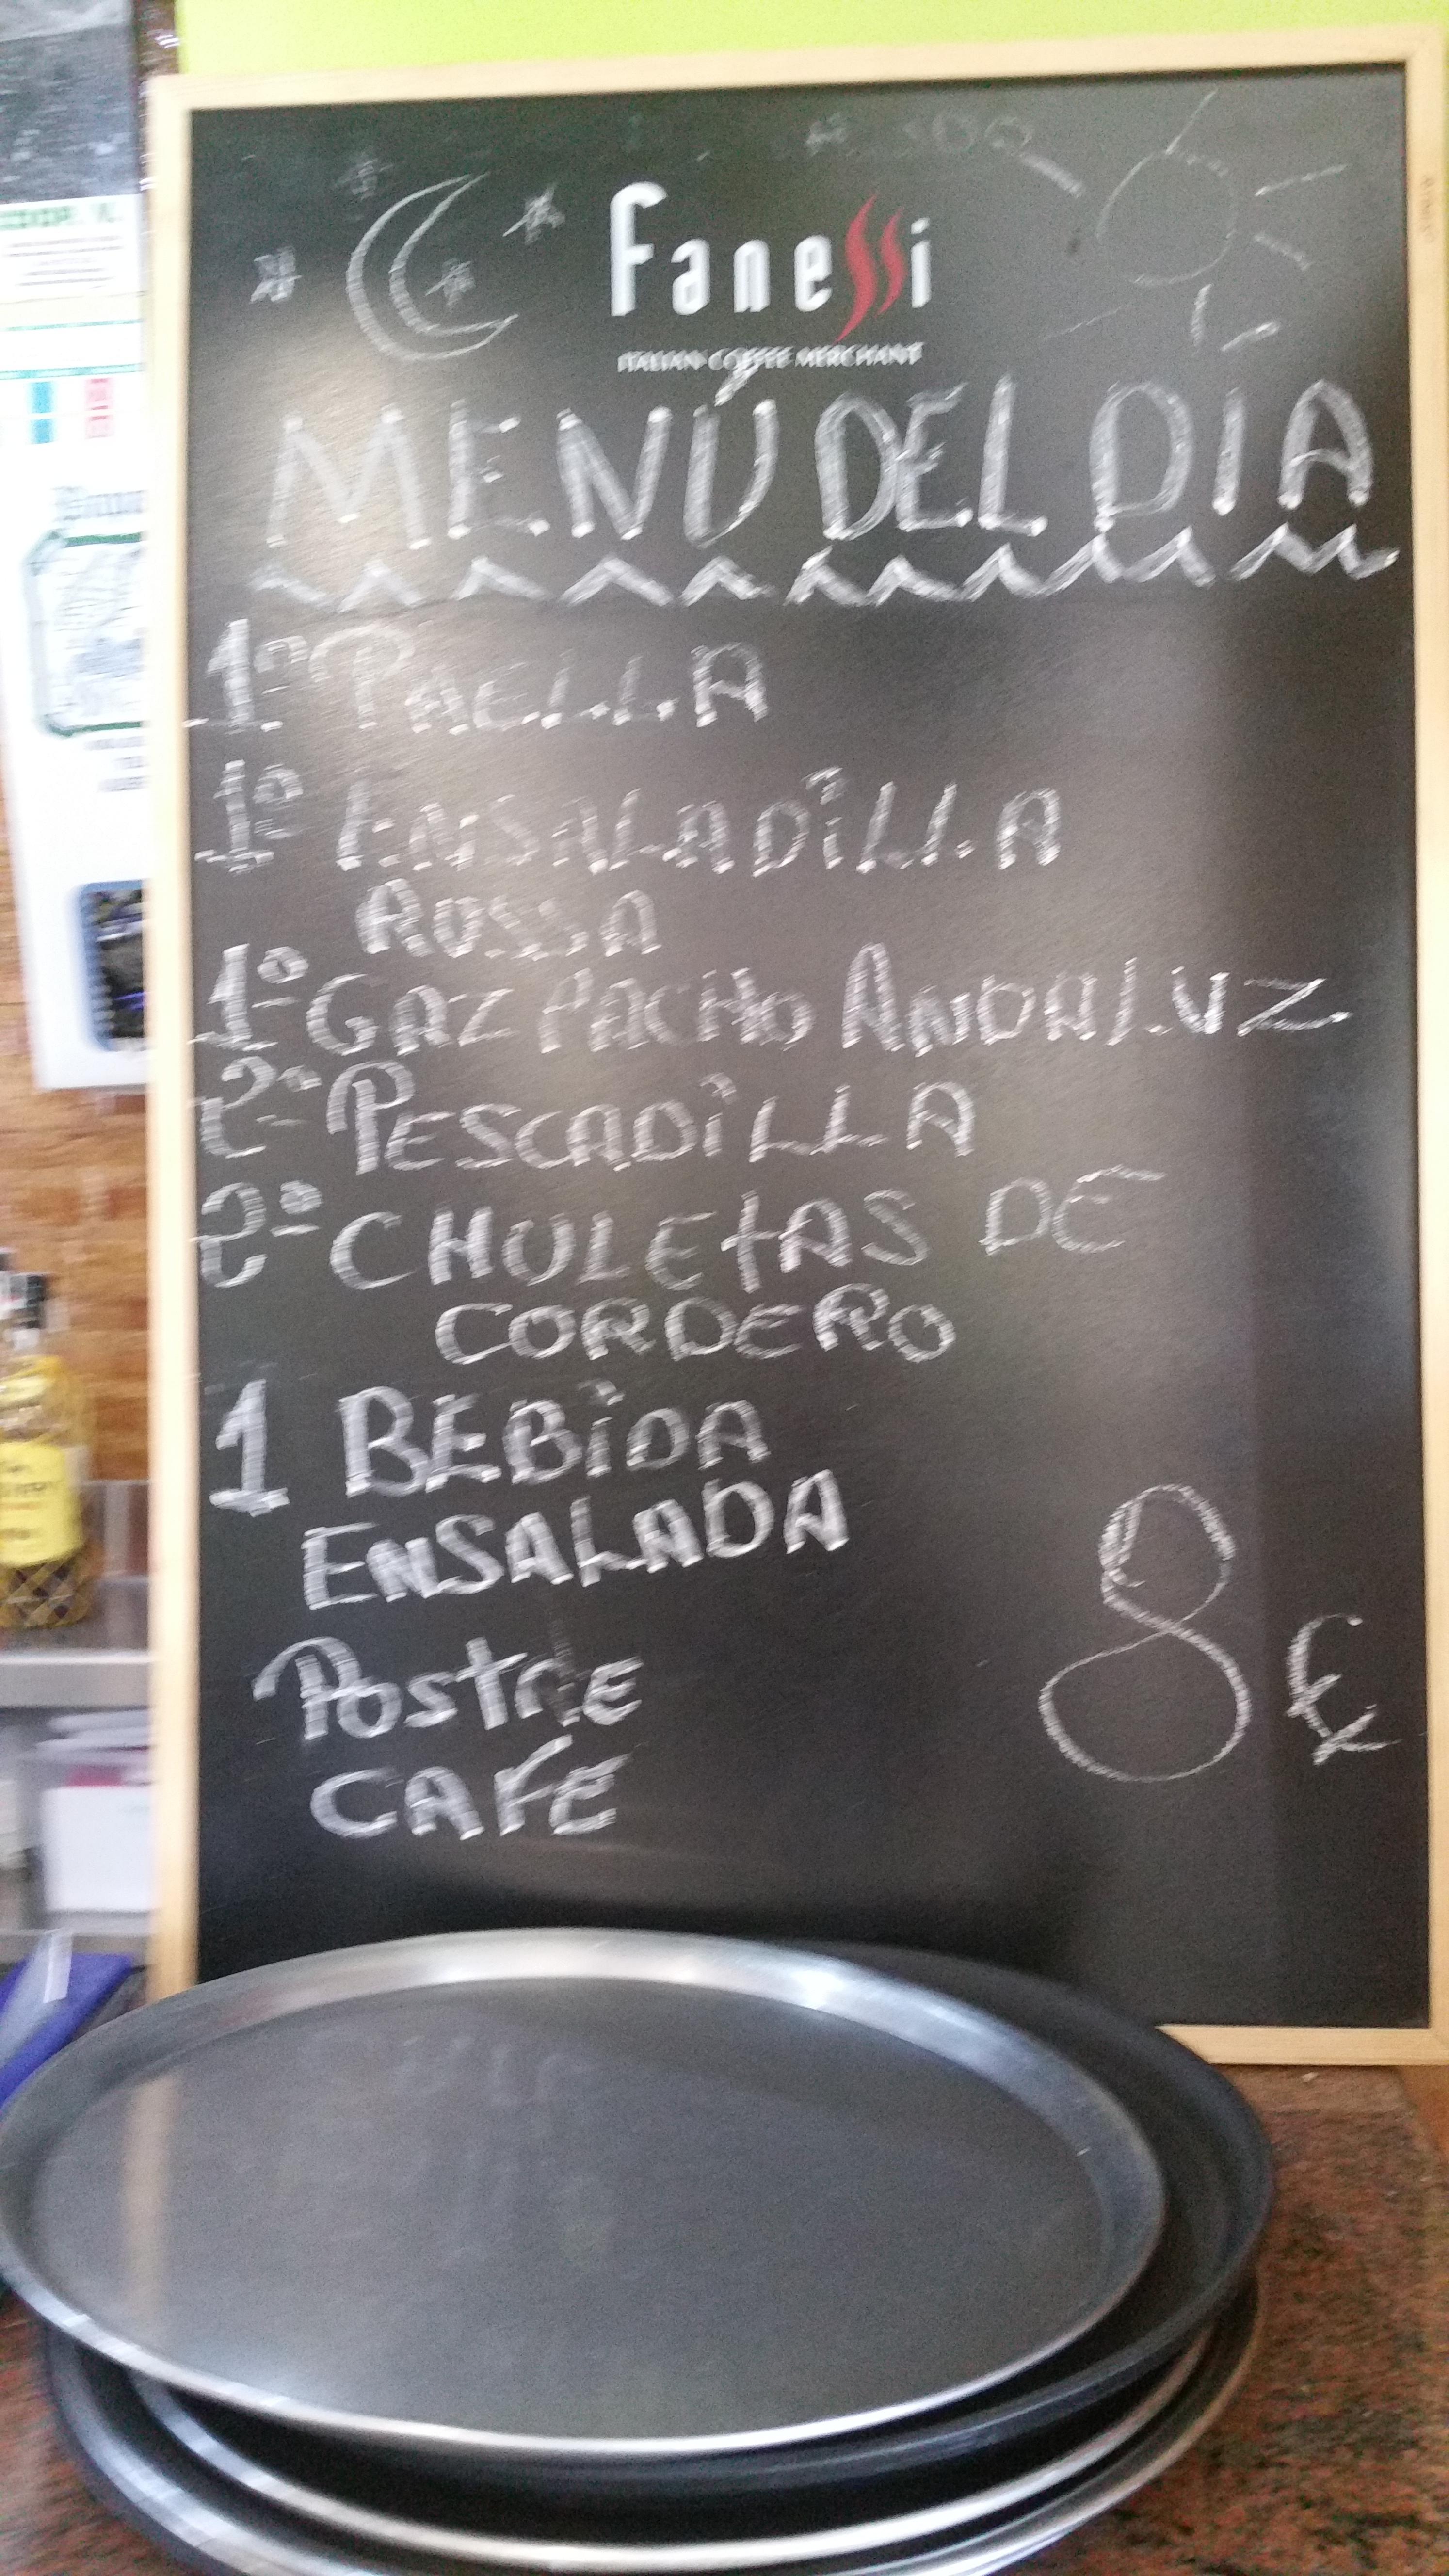 fanessi
ITALIAN COFFEE MERCHANT
MENÚ DEL DÍA
1º PAELLA
1º ENSALADiLLA
ROSSA
1º GAZPACHO ANDALUZ
2º PESCADiLLA
2º CHULEtAS DE
CORDERO
1 BEBiDA
ENSALADA
PostrE
CAFÉ
8 €